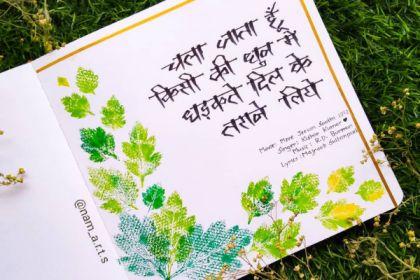 चला जाता हूँ
किसी की धुन में
धड़कते दिल के
तराने लिये
Movie: Mere Jeevan Saathi 1972
Singer: Kishor Kumar
Music: R.D. Burman
Lyrics: Majrooh Sultanpuri
@nam_a.r.t.s